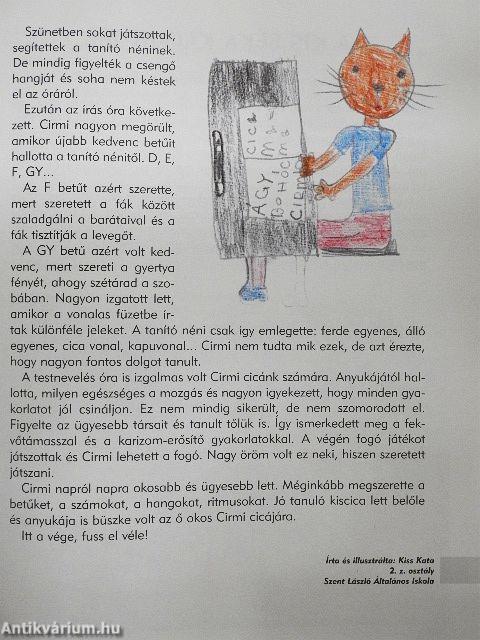 Szünetben sokat játszottak,
segítettek a tanító néninek.
De mindig figyelték a csengő
hangját és soha nem késtek
el az óráról.
Ezután az írás óra követke-
zett. Cirmi nagyon megörült,
amikor újabb kedvenc betűit
hallotta a tanító nénitől. D, E,
F, GY...
Az F betűt azért szerette,
mert szeretett a fák között
szaladgálni a barátaival és a
fák tisztítják a levegőt.
A GY betű azért volt ked-
venc, mert szereti a gyertya
fényét, ahogy szétárad a szo-
bában. Nagyon izgatott lett,
amikor a vonalas füzetbe ír-
tak különféle jeleket. A tanító néni csak így emlegette: ferde egyenes, álló
egyenes, cica vonal, kapuvonal... Cirmi nem tudta mik ezek, de azt érezte,
hogy nagyon fontos dolgot tanult.
A testnevelés óra is izgalmas volt Cirmi cicánk számára. Anyukájától hal-
lotta, milyen egészséges a mozgás és nagyon igyekezett, hogy minden gya-
korlatot jól csináljon. Ez nem mindig sikerült, de nem szomorodott el.
Figyelte az ügyesebb társait és tanult tőlük is. Így ismerkedett meg a fek-
vőtámasszal és a karizom-erősítő gyakorlatokkal. A végén fogó játékot
játszottak és Cirmi lehetett a fogó. Nagy öröm volt ez neki, hiszen szeretett
játszani.
Cirmi napról napra okosabb és ügyesebb lett. Méginkább megszerette a
betűket, a számokat, a hangokat, ritmusokat. Jó tanuló kiscica lett belőle
és anyukája is büszke volt az ő okos Cirmi cicájára.
Itt a vége, fuss el véle!
CICA
MA-
ÁGY
BOHÓC
CIRMI
Írta és illusztrálta: Kiss Kata
2. z. osztály
Szent László Általános Iskola
Antikvárium.hu